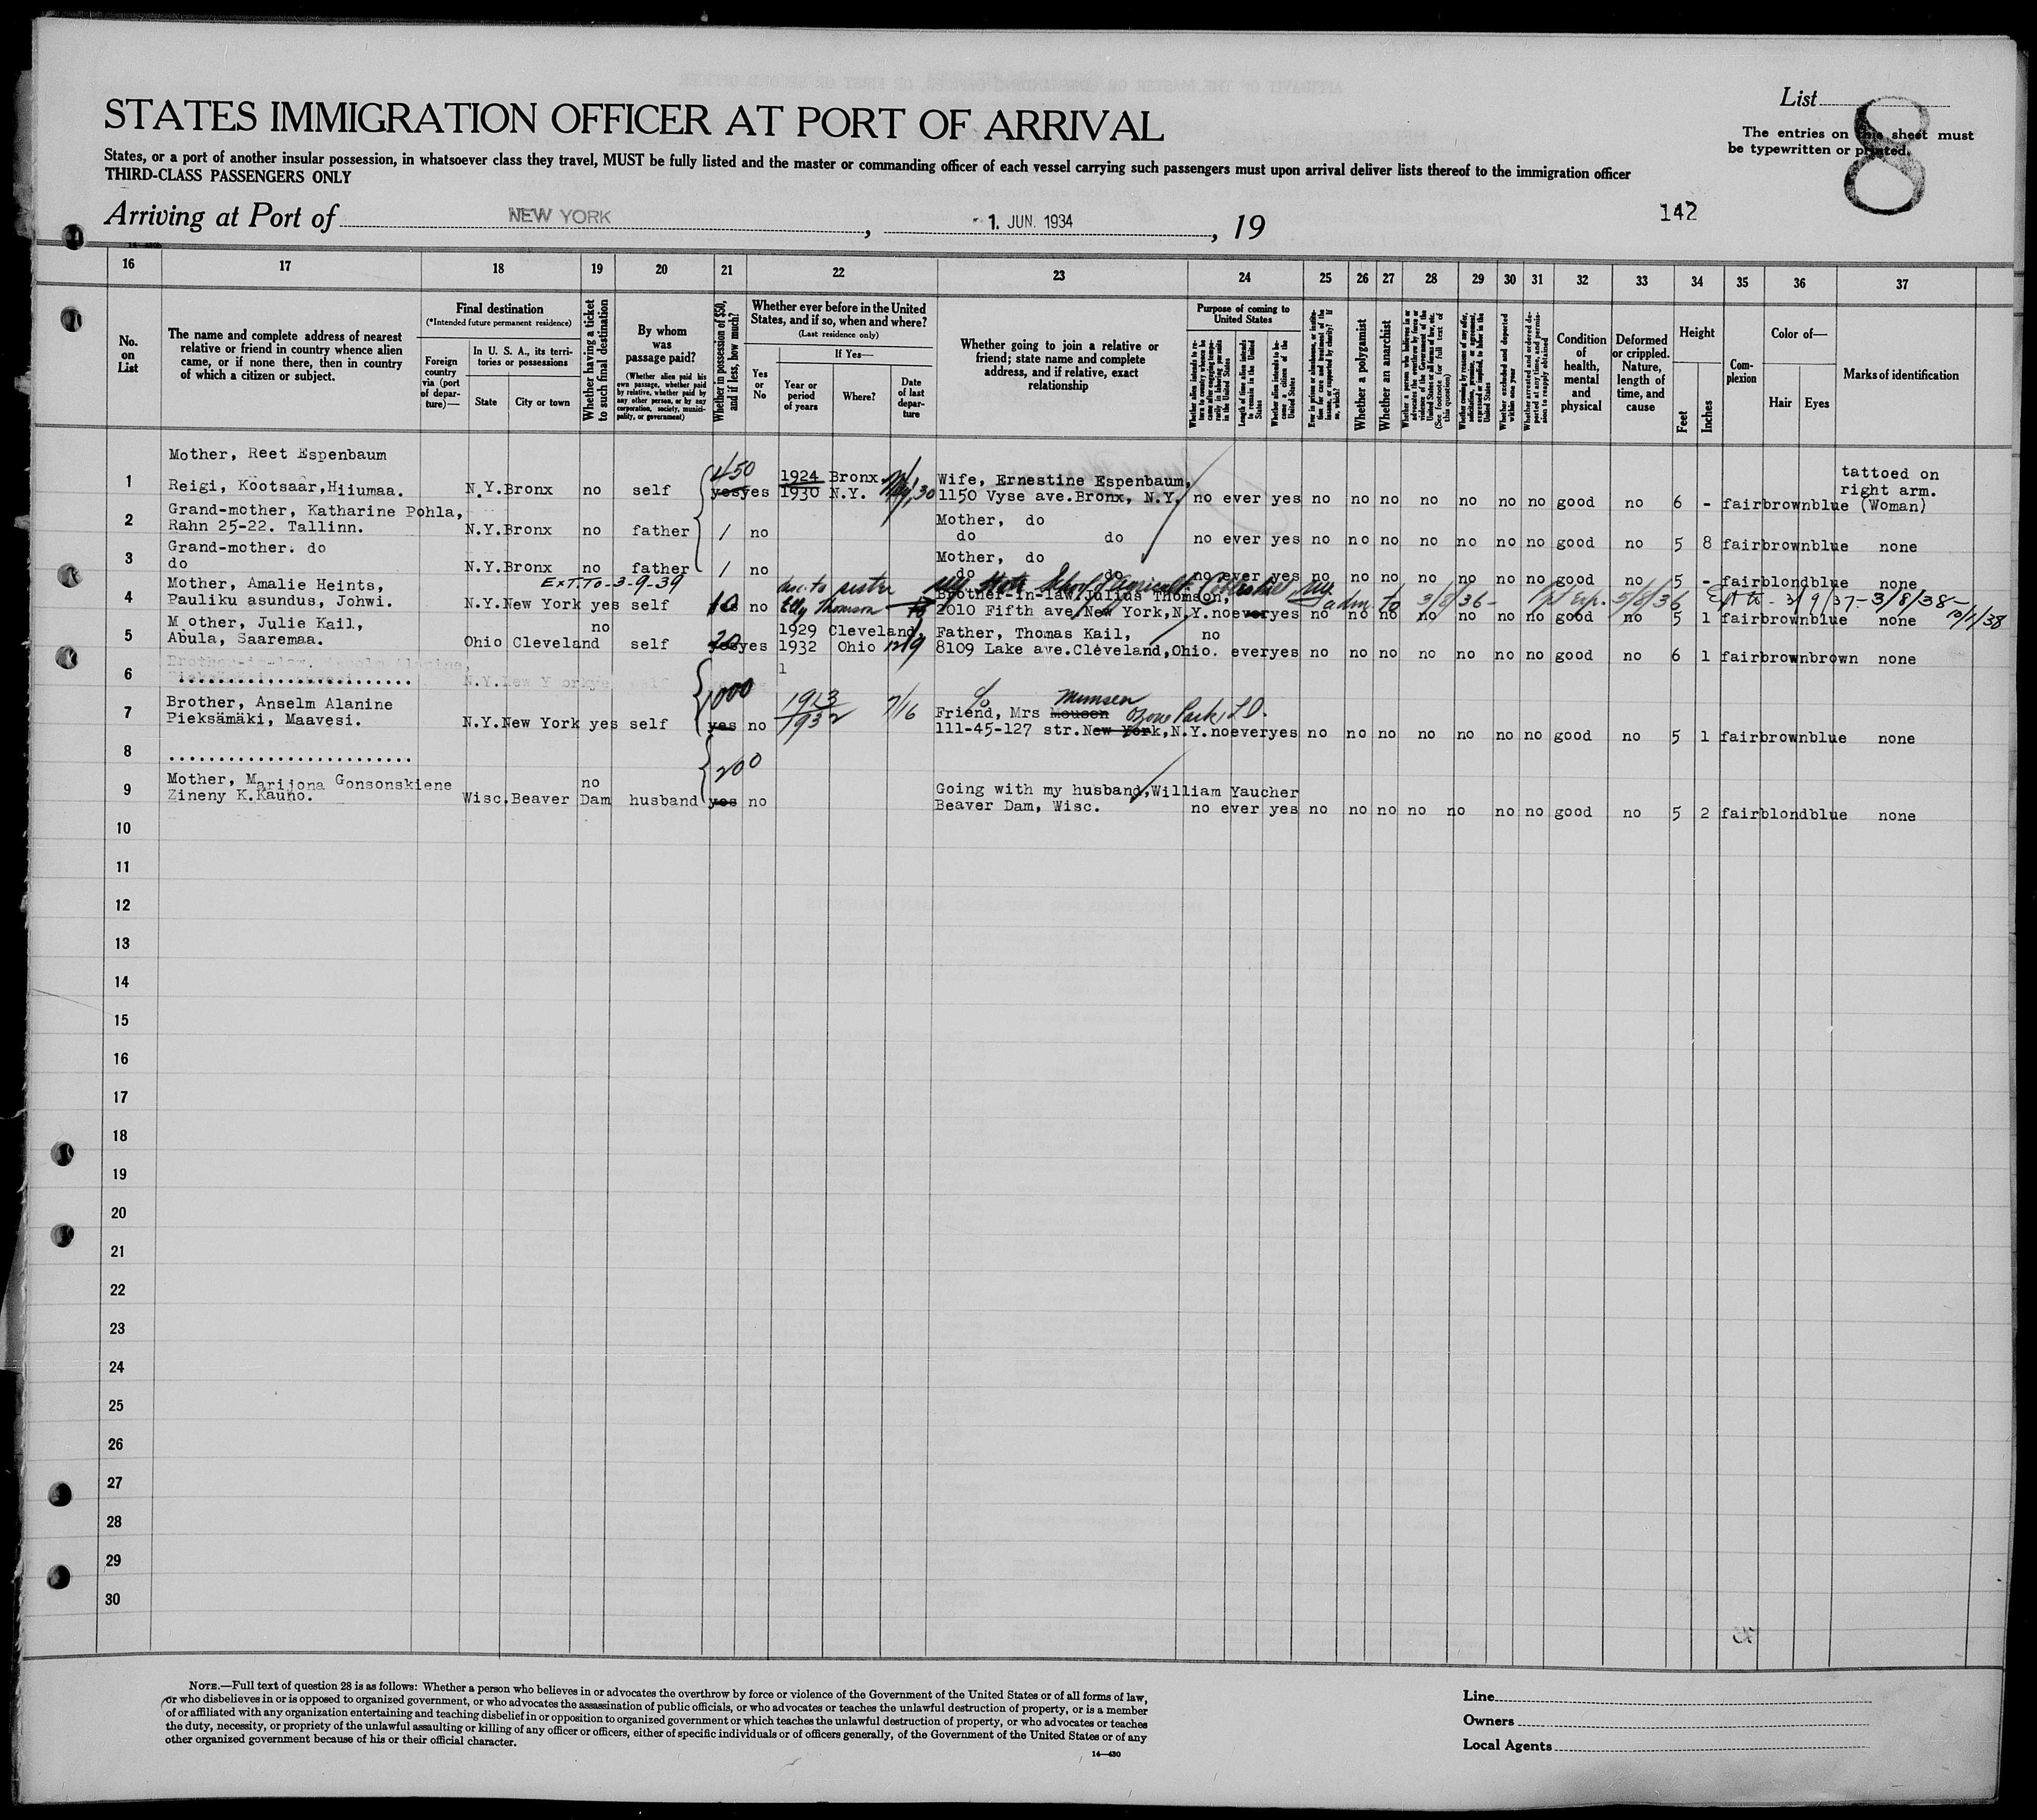 STATES IMMIGRATION OFFICER AT PORT OF ARRIVAL
List
8
The entries on this sheet must
be typewritten or printed.
States, or a port of another insular possession, in whatsoever class they travel, MUST be fully listed and the master or commanding officer of each vessel carrying such passengers must upon arrival deliver lists thereof to the immigration officer
THIRD-CLASS PASSENGERS ONLY
Arriving at Port of NEW YORK, 1. JUN. 1934, 19
142
16 17 18 19 20 21 22 23 24 25 26 27 28 29 30 31 32 33 34 35 36 37
No. on List
The name and complete address of nearest relative or friend in country whence alien came, or if none there, then in country of which a citizen or subject.
Final destination
(*Intended future permanent residence)
Foreign country via (port of departure)—
In U. S. A., its territories or possessions
State
City or town
Whether having a ticket to such final destination
By whom was passage paid?
(Whether alien paid his own passage, whether paid by relative, whether paid by any other person, or by any corporation, society, municipality, or government)
Whether in possession of $50, and if less, how much?
Whether ever before in the United States, and if so, when and where?
(Last residence only)
Yes or No
If Yes—
Year or period of years
Where?
Date of last departure
Whether going to join a relative or friend; state name and complete address, and if relative, exact relationship
Purpose of coming to United States
Length of time alien intends to remain in the United States
Whether alien intends to become a citizen of the United States
Whether a polygamist
Whether an anarchist
Whether excluded and deported within one year
Condition of health, mental and physical
Deformed or crippled. Nature, length of time, and cause
Height
Feet
Inches
Complexion
Color of—
Hair
Eyes
Marks of identification
Mother, Reet Espenbaum
450 tattoed on
1 Reigi, Kootsaar, Hiiumaa. N.Y. Bronx no self yes yes 1924 1930 Bronx, N.Y. Wife, Ernestine Espenbaum, 1150 Vyse ave. Bronx, N.Y. no ever yes no no no no no no no good no 6 - fair brown blue right arm. (Woman)
2 Grand-mother, Katharine Pohla,
Rahn 25-22. Tallinn. N.Y. Bronx no father / no Mother, do do do no ever yes no no no no no no no good no 5 8 fair brown blue none
3 Grand-mother. do
do N.Y. Bronx no father / no Mother, do do do no ever yes no no no no no no no good no 5 - fair blond blue none
EXT. TO-3-9-39
4 Mother, Amalie Heints,
Pauliku asundus, Johwi. N.Y. New York yes self no sister Elly Thomson Brother-in-law, Julius Thomson, 2010 Fifth ave, New York, N.Y. no ever yes no no no no no no no good no 5 1 fair brown blue none
adm. to 3/8/36 5/8/36 3/9/37- 3/8/38- 10/1/38
5 Mother, Julie Kail,
Abula, Saaremaa. Ohio Cleveland no self yes yes 1929 1932 Cleveland, Ohio 12/9 Father, Thomas Kail, 8109 Lake ave. Cleveland, Ohio. no ever yes no no no no no no no good no 6 1 fair brown brown none
6 .......................
7 Brother, Anselm Alanine
Pieksämäki, Maavesi. N.Y. New York yes self 1000 yes no 1923 1932 7/16 c/o Friend, Mrs Mousen Munsen Ozone Park, L.D. 111-45-127 str. New York, N.Y. no ever yes no no no no no no no good no 5 1 fair brown blue none
8 .......................
9 Mother, Marijona Gonsonskiene
Zineny K. Kauno. Wisc. Beaver Dam no husband 200 yes no Going with my husband, William Yaucher Beaver Dam, Wisc. no ever yes no no no no no no no good no 5 2 fair blond blue none
10
11
12
13
14
15
16
17
18
19
20
21
22
23
24
25
26
27
28
29
30
NOTE.—Full text of question 28 is as follows: Whether a person who believes in or advocates the overthrow by force or violence of the Government of the United States or of all forms of law,
or who disbelieves in or is opposed to organized government, or who advocates the assassination of public officials, or who advocates or teaches the unlawful destruction of property, or is a member
of or affiliated with any organization entertaining and teaching disbelief in or opposition to organized government or which teaches the unlawful destruction of property, or who advocates or teaches
the duty, necessity, or propriety of the unlawful assaulting or killing of any officer or officers, either of specific individuals or of officers generally, of the Government of the United States or of any
other organized government because of his or their official character.
14—430
Line
Owners
Local Agents